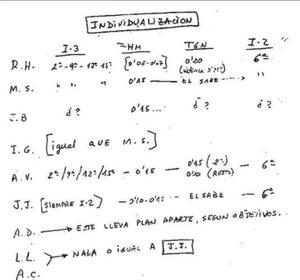 INDIVIDUALIZACION
I-3 HM TGN I-2
R.H. 2ª-9ª-12ª-15ª [0'05-0'07] 0'20 6ª
M.S. " " " 0'15 — EL SABE → "
J.B ¿? 0'15... ¿? ¿?
I.G. [igual QUE M.S.]
A.V. 2ª/9ª/12ª/15ª — 0'15 — 0'15 (2ª) — 6ª
0'20 (RESTO)
J.J. [SIEMPRE I-2] — 0'10-0'15 --- EL SABE — 6ª
A.D. → ESTE LLEVA PLAN APARTE, SEGUN OBJETIVOS.
L.L. → NADA O IGUAL A J.J.
A.C.